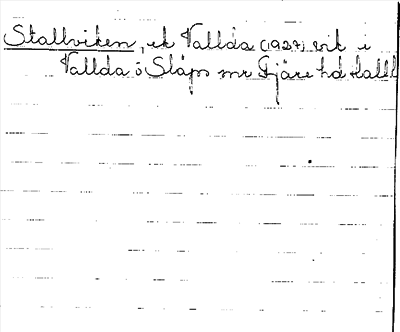 Stallviken, ek Vallda (1927) vik i
Vallda o Släps snr Fjäre hd Hall